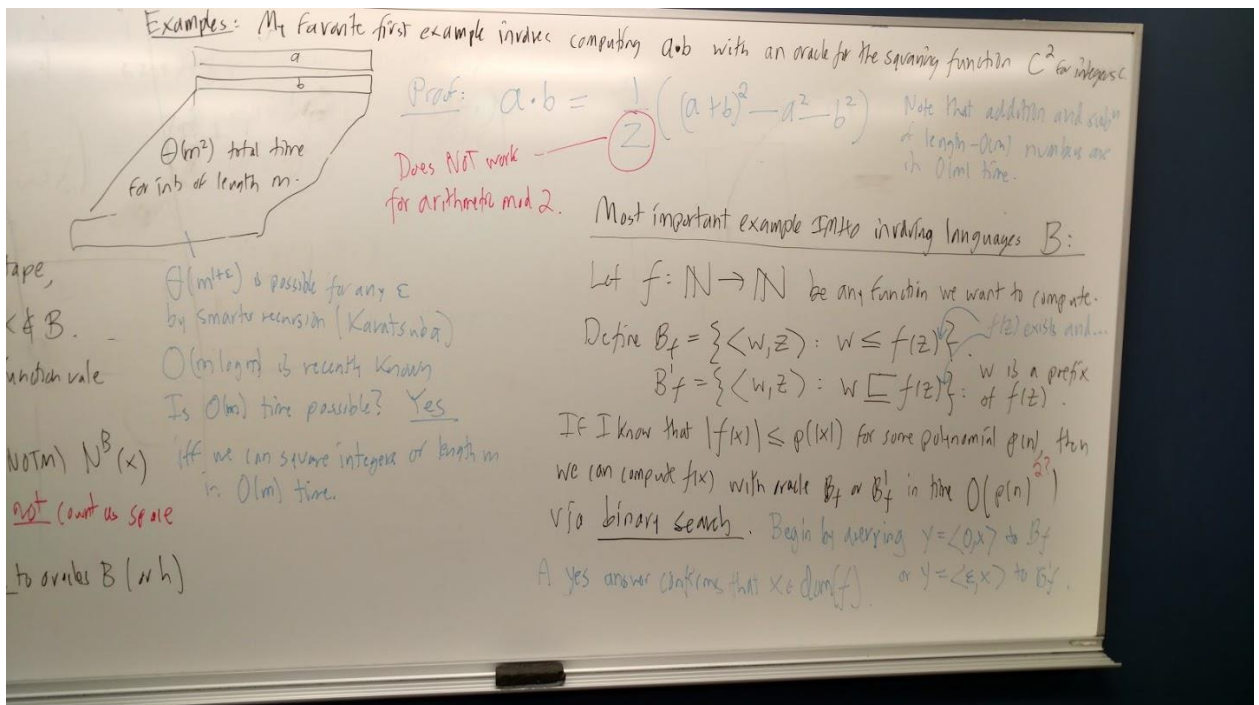 Examples: My Favorite first example involves computing a•b with an oracle for the squaring function C² for integers c.
a
b
Θ(m²) total time
for ints of length m.
Proof: a•b = 1/2 ((a+b)² — a² — b²)
Does NOT work
for arithmetic mod 2.
Note that addition and subⁿ
of length-O(m) numbers are
in O(m) time.
tape,
& B.
function value
(NOTM) N^B(x)
not count as space
to oracles B (or h)
Θ(m^(1+ε)) is possible for any ε
by smarter recursion (Karatsuba)
O(m log m) is recently known
Is O(m) time possible? Yes
iff we can square integers of length m
in O(m) time.
Most important example IMHO involving languages B:
Let f: ℕ → ℕ be any function we want to compute.
Define B_f = {<w,z> : w ≤ f(z)}.
f(z) exists and...
B'_f = {<w,z> : w ⊑ f(z)}: w is a prefix
of f(z).
If I know that |f(x)| ≤ p(|x|) for some polynomial p(n), then
we can compute f(x) with oracle B_f or B'_f in time O(p(n)^2?)
via binary search. Begin by querying y = <0,x> to B_f
or y = <ε,x> to B'_f.
A yes answer confirms that x ∈ dom(f).